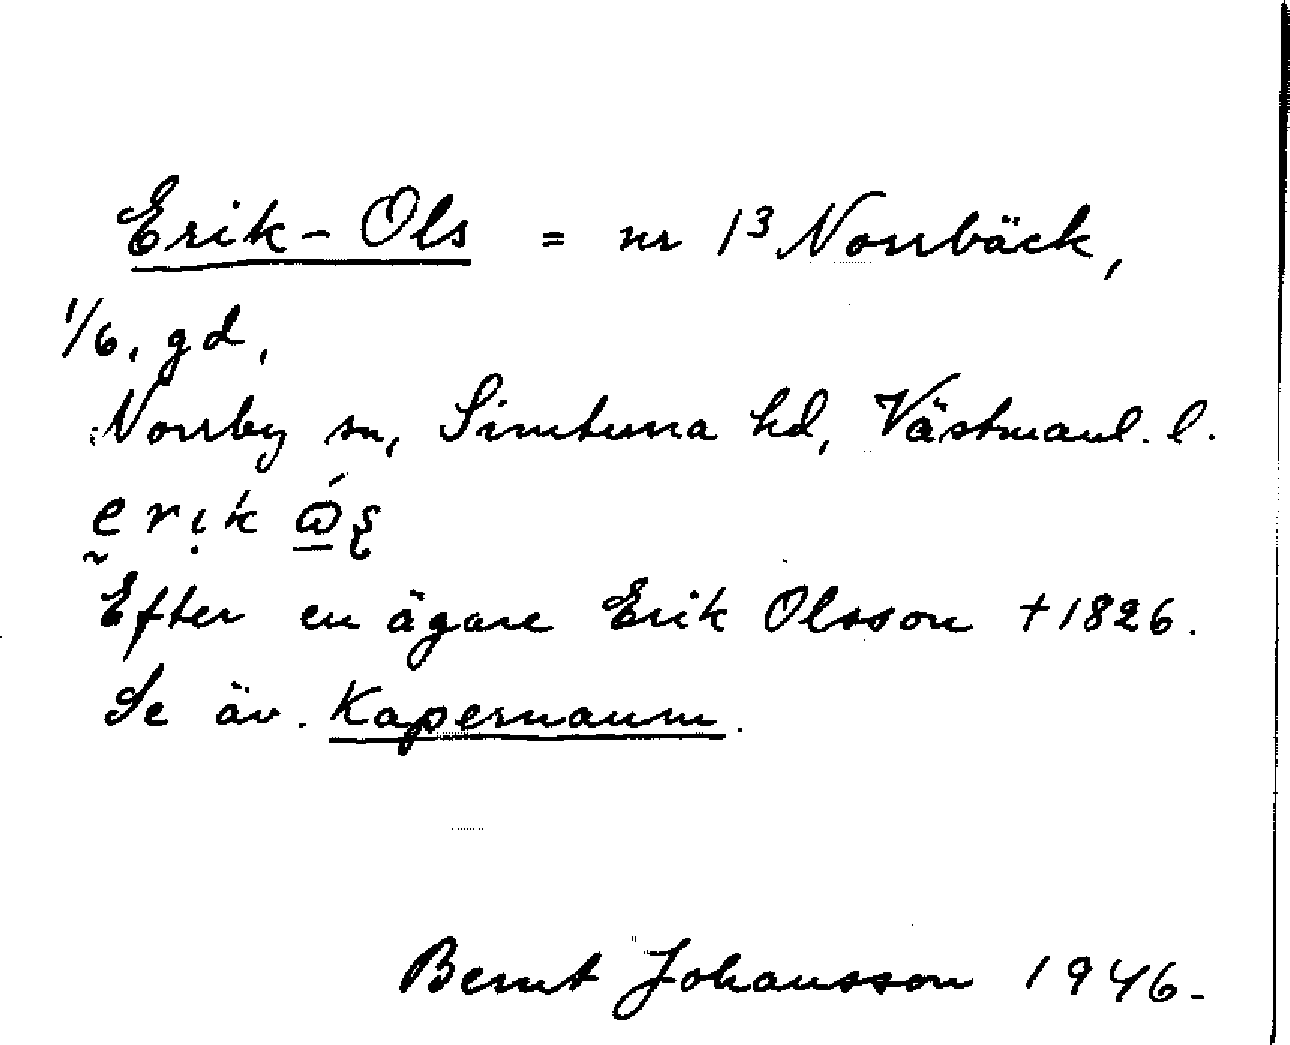 Erik-Ols = nr 1³ Norrbäck,
1/6, gd,
Norrby sn, Simtuna hd, Västmanl. l.
Efter en ägare Erik Olsson †1826.
Se äv. Kapernaum.
Bernt Johansson 1946.